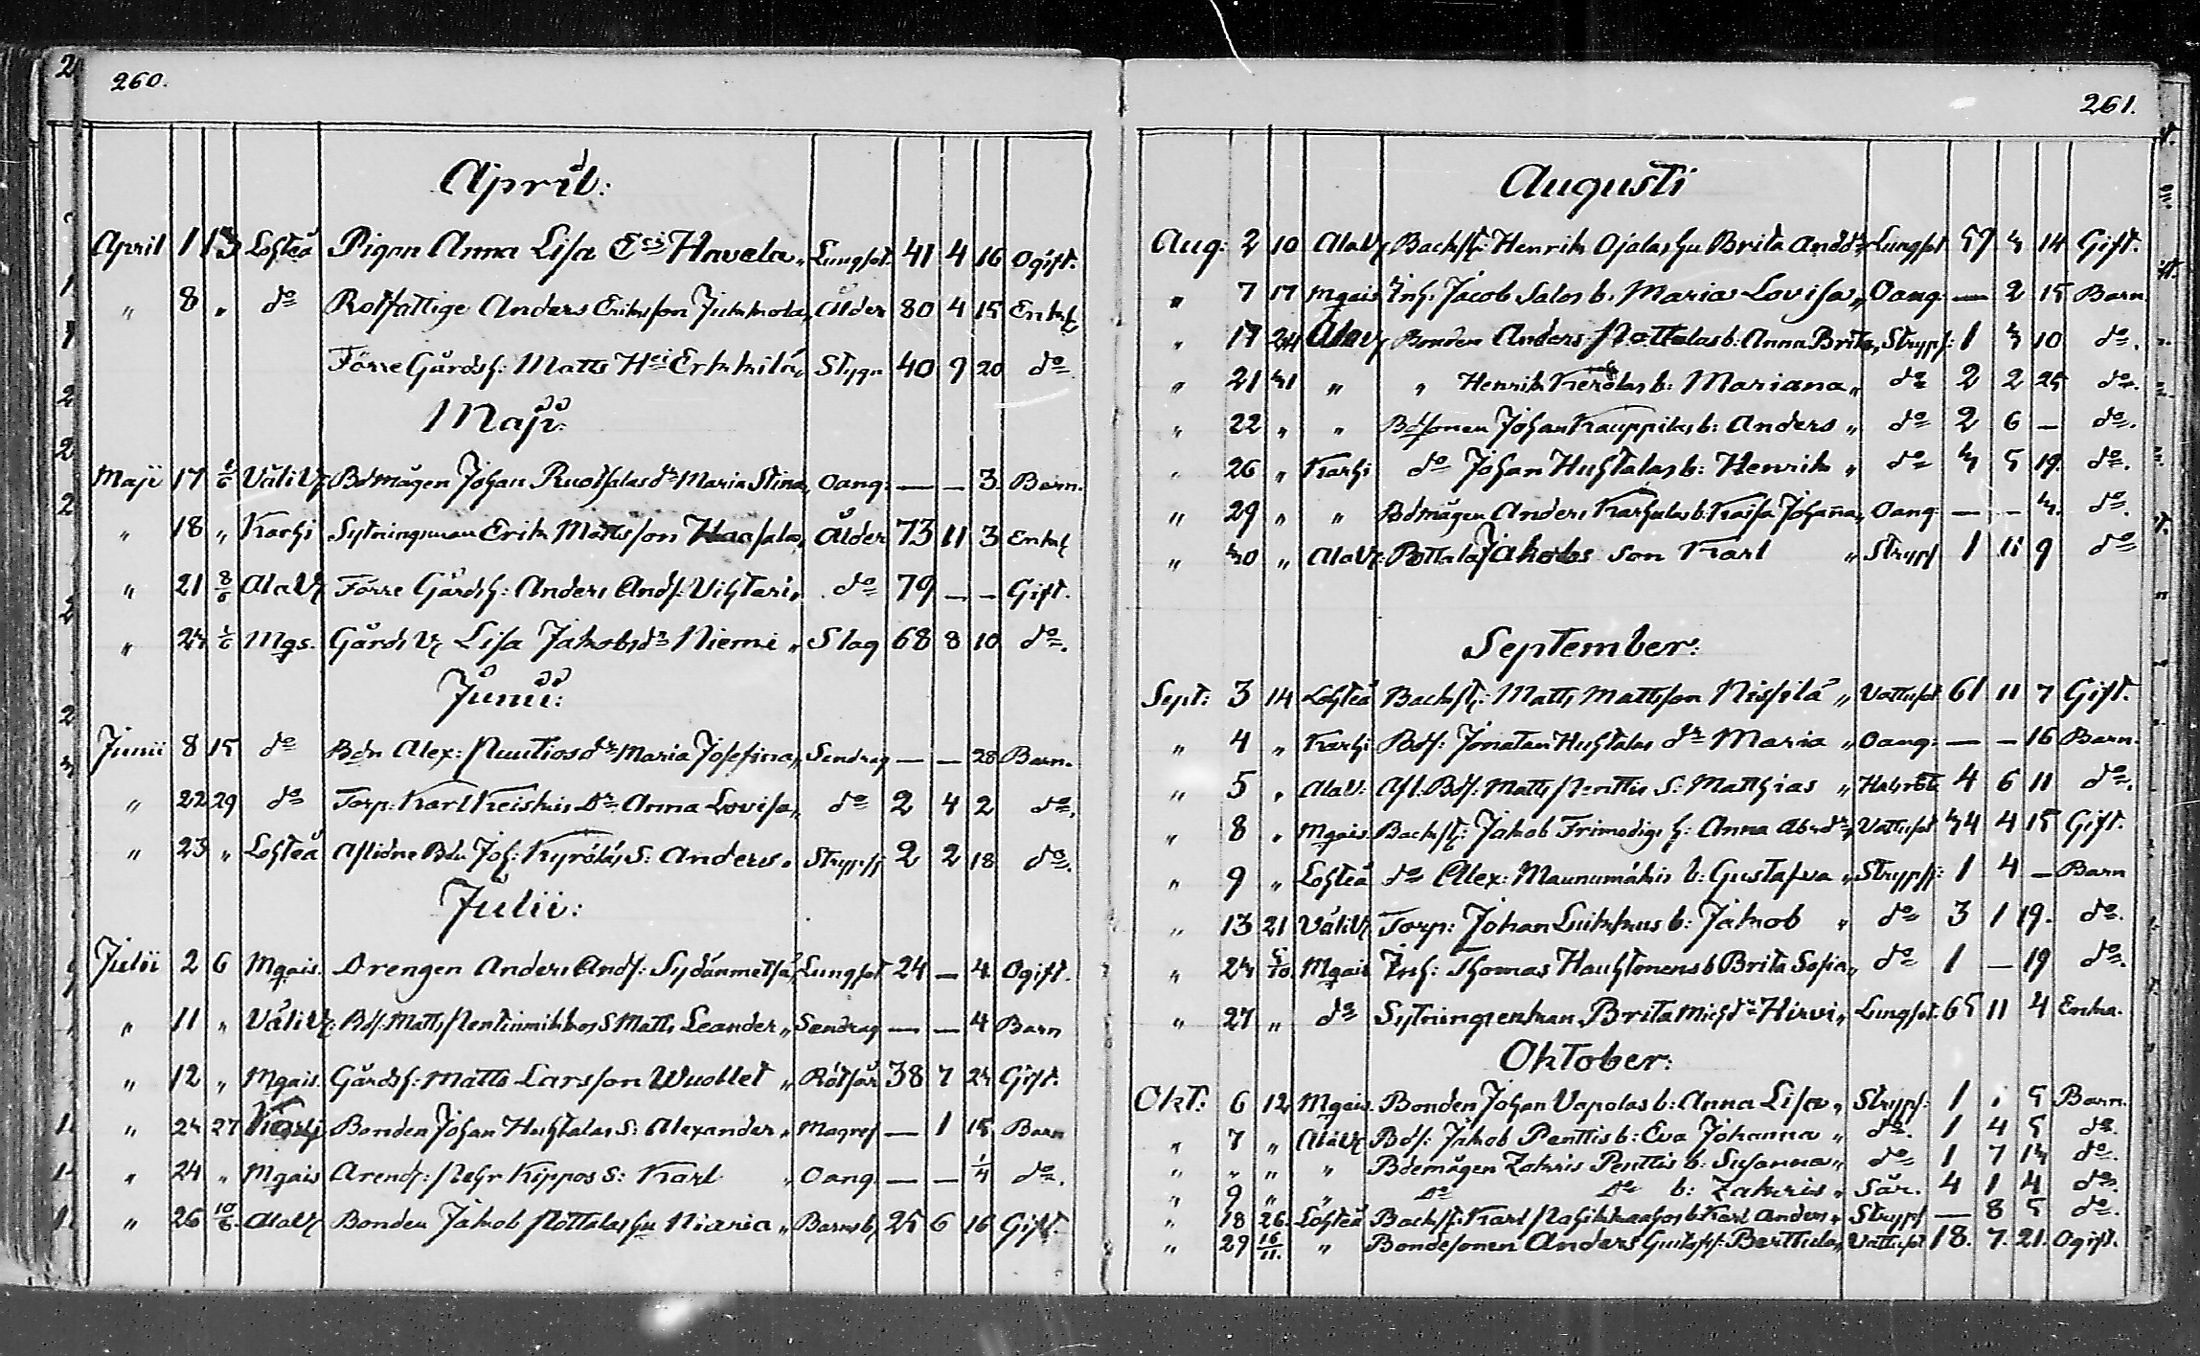 260.
April:
April 1 13 Lohteå Pigan Anna Lisa E:ci Havela „ Lungsot. 41 4 16 Ogift.
„ 8 „ do Rotfattige Anders Eriksson Jukkola „ Ålder 80 4 15 Enkl
Förre Gårdsh: Matts H:ci Erkkilä „ Stygn 40 9 20 do
Maji:
Maji 17 1/6 Väli V. Bdmågen Johan Ruothalas dr Maria Stina „ Oang: — — 3. Barn.
„ 18 „ Karhi Sytningsman Erik Mattsson „ Ålder 73 11 3 Enkl
„ 21 8/6 Ala V. Förre Gårdsh: Anders Ands: Vihtari „ do 79 — — Gift.
„ 24 1/6 Mgs. Gårds V. Lisa Jakobsdr Niemi „ Slag 68 8 10 do.
Junii:
Junii 8 15 do Bdn Alex: Nuutios dr Maria Josefina „ Sendrag — — 28 Barn.
„ 22 29 do Torp: Karl Keiskis Dr Anna Lovisa „ do 2 4 2 do.
„ 23 „ Lohteå Aflidne Bdn Joh: Kyröläs S: Anders „ Strypsj 2 2 18 do.
Julii:
Julii 2 6 Mgais. Drengen Anders Ands: Sydänmetsä „ Lungsot 24 — 4 Ogift.
„ 11 „ Väli V. Bds: Matts Pentinmikkos S Matts Leander „ Sendrag — — 4 Barn
„ 12 „ Mgais. Gårdsh: Matts Larsson Wuollet „ Rötsår 38 7 24 Gift.
„ 24 27 Karhi Bonden Johan Huhtalas S: Alexander „ Magref — 1 15 Barn
„ 24 „ Mgais Arend: Kippos S: Karl „ Oang. — — 1/4 do.
„ 26 10/6 Ala V. Bonden Jakob Nottalas hu Maria „ Barnsb. 25 6 16 Gift.
261.
Augusti
Aug: 2 10 Ala V. Backst: Henrik Ojalas hu Brita Andsdr Lungsot 57 3 14 Gift.
„ 7 17 Mgais Inh. Jacob Salos b. Maria Lovisa „ Oang: — 2 15 Barn
„ 17 24 Ala V. Bonden Anders Nottalas b: Anna Brita „ Stryps: 1 3 10 do.
„ 21 31 „ „ Henrik Kerolas b: Mariana „ do 2 2 25 do.
„ 22 „ „ Bdsonen Johan Kauppilas b: Anders „ do 2 6 — do.
„ 26 „ Karhi do Johan Huhtalas b: Henrik „ do 3 5 19. do.
„ 29 „ „ Bdmågen Anders Karhulas b: Kaisa Johana „ Oang — — 3. do.
„ 30 „ Ala V: Pottala Jakobs son Karl „ Stryps 1 11 9 do
September:
Sept: 3 14 Lohteå Backst: Matts Mattsson Nissilä „ Vattusot 61 11 7 Gift.
„ 4 „ Karhi Bds: Jonatan Huhtalas dr Maria „ Oang: — — 16 Barn.
„ 5 „ Ala V: Afl. Bds: Matts Penttis S: Matthias „ 4 6 11 do.
„ 8 „ Mgais. Backst: Jakob Frimodigs h: Anna Abrdr „ Vattusot 34 4 15 Gift.
„ 9 „ Lohteå do Alex: Maunumäkis b: Gustafva „ Strypsj: 1 4 — Barn
„ 13 21 Väli V. Torp: Johan Luikkus b: Jakob „ do 3 1 19. do.
„ 24 5/10. Mgais Inh: Thomas Hauhtonens b Brita Sofia „ do 1 — 19 do.
„ 27 „ do Sytningsenkan Brita Michsdr Hirvi „ Lungsot. 65 11 4 Enka.
Oktober:
Okt: 6 12 Mgais. Bonden Johan Vapolas b: Anna Lisa „ Stryps: 1 1 5 Barn.
„ 7 „ Ala V. Bds: Jakob Penttis b: Eva Johanna „ do. 1 4 5 do.
„ „ „ „ Bdemågen Zakris Penttis b: Susanna „ do 1 7 13 do.
„ 9 „ „ Do Do b: Zakris „ Sår. 4 1 4 do.
„ 18 26. Lohteå Backst: Karl b: Karl Anders „ Stryps — 8 5 do.
„ 29 16/11. „ Bondesonen Anders Gustafs: Berttula „ Vattusot 18. 7. 21. Ogift.